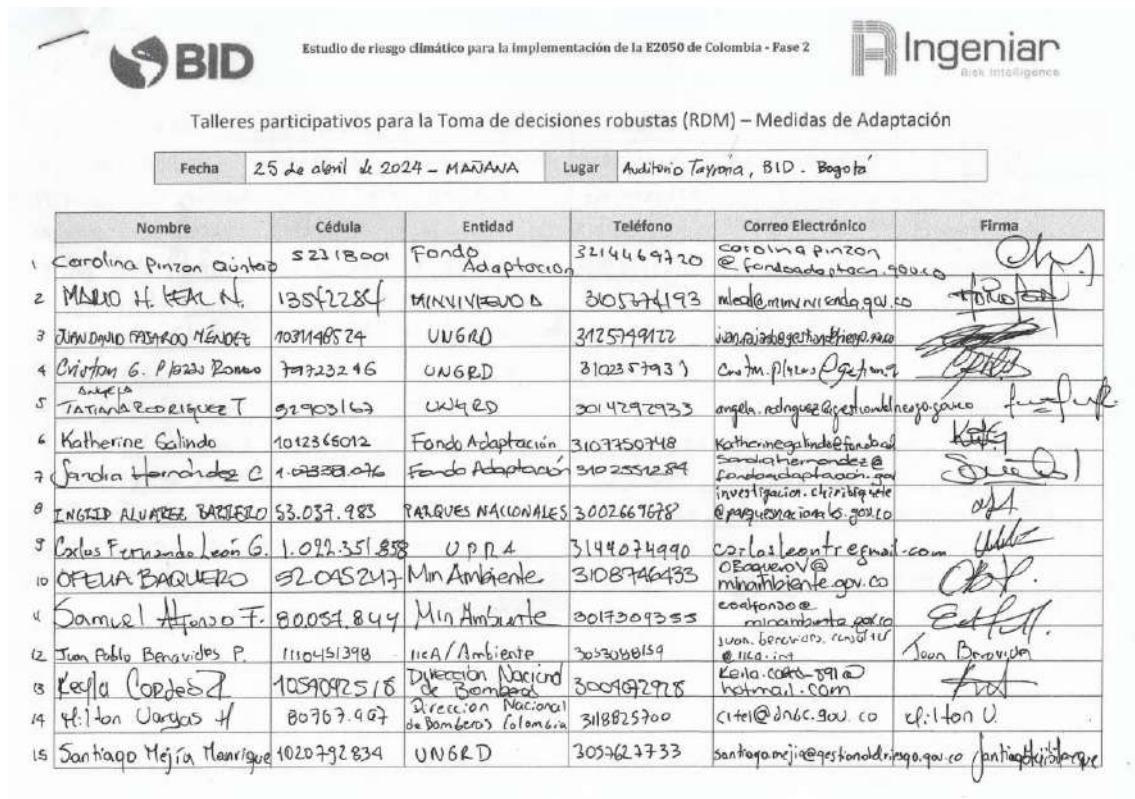 BID
Estudio de riesgo climático para la implementación de la E2050 de Colombia - Fase 2
Ingeniar
Risk Intelligence
Talleres participativos para la Toma de decisiones robustas (RDM) – Medidas de Adaptación
Fecha 25 de abril de 2024 - MAÑANA Lugar Auditorio Tayrona, BID. Bogotá
Nombre Cédula Entidad Teléfono Correo Electrónico Firma
1 Carolina Pinzon Quintero 52318001 Fondo Adaptacion 3214469720 carolina pinzon @
2 MARIO H. LEAL N. 13542284 MINVIVIENDA 3105374193 mleal@minvivienda.gov.co
3 JUAN DAVID FAJARDO MÉNDEZ 1031148524 UNGRD 3125749122
4 Cristian G. Plazas Romero 79723246 UNGRD 3102357931
5 ANGELA TATIANA RODRIGUEZ T 52903163 UNGRD 3014292933 angela.rodriguez@gestiondelriesgo.gov.co
6 Katherine Galindo 1012365012 Fondo Adaptación 3107750748
7 Sandra Hernández C Fondo Adaptación 3102551284 sandrahernandez@
8 INGRID ALVAREZ BARRERO 53.037.983 PARQUES NACIONALES 3002669678 investigacion.chiribiquete @parquesnacionales.gov.co
9 Carlos Fernando León G. 1.022.351.858 UPRA 3144074990
10 OFELIA BAQUERO 52045247 Min Ambiente 3108746433 OBaqueroV@ minambiente.gov.co
11 Samuel Alfonso F. 80.057.844 Min Ambiente 3017309355
12 Juan Pablo Benavides P. 1110451398 IICA/Ambiente 3053088159 @iica.int Juan Benavides
13 Keyla Cordes 1054092518 Dirección Nacional de Bomberos 3004072928 hotmail.com
14 Hilton Vargas H 80767.967 Dirección Nacional de Bomberos Colombia 3118825700 citel@dnbc.gov.co Hilton V.
15 Santiago Mejía Manrique 1020792834 UNGRD 3057627733 santiago.mejia@gestiondelriesgo.gov.co